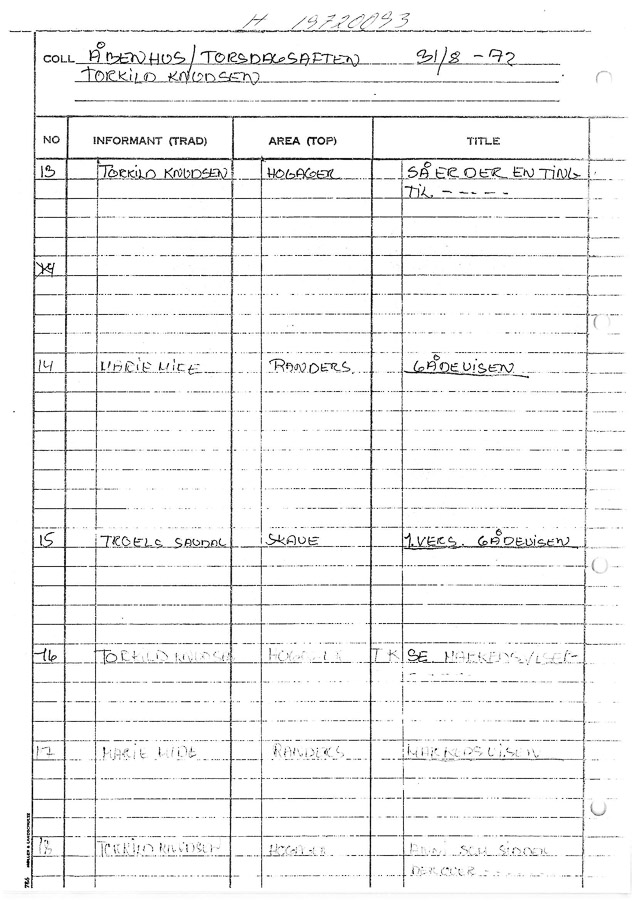 H 19720093
COLL ÅBENHUS/TORSDAGSAFTEN 31/8 - 72
TORKILD KNUDSEN
NO INFORMANT (TRAD) AREA (TOP) TITLE
13 TORKILD KNUDSEN HOGAGER SÅ ER DER EN TING
TIL - - - - -
14
14 MARIE HIDE RANDERS GÅDEVISEN
15 TROELS SANDAL SKAVE 1. VERS. GÅDEVISEN
16 TORKILD KNUDSEN HOGAGER T K SE
17 MARIE HIDE RANDERS MARKEDSVISEN
18 TORKILD KNUDSEN HOGAGER SOM SIDDER
DEROVER - - - -